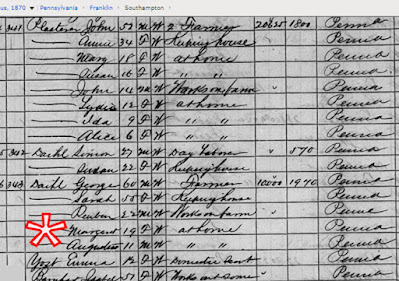 us, 1870 ▼ Pennsylvania › Franklin › Southampton ›
341 John 52 M W Farmer 20625 1800 Penna
Annie 34 F W Keeping house Penna
Mary 18 F W at home Penna
Susan 16 F W " " Penna
John 14 M W Works on farm Penna
Lydia 12 F W at home Penna
Ida 9 F W " " Penna
Alice 6 F W " " Penna
5 342 Deihl Simon 27 M W Day Labor 570 Penna
Susan 22 F W Keeping house Penna
6 343 Deihl George 60 M W Farmer 10000 1970 Penna
Sarah 55 F W Keeping house Penna
Reuben 22 M W Works on farm Penna
Margaret 19 F W at home Penna
Augustus 11 M W " " Penna
Emma 12 F W Domestic Servt Penna
57 F W Penna